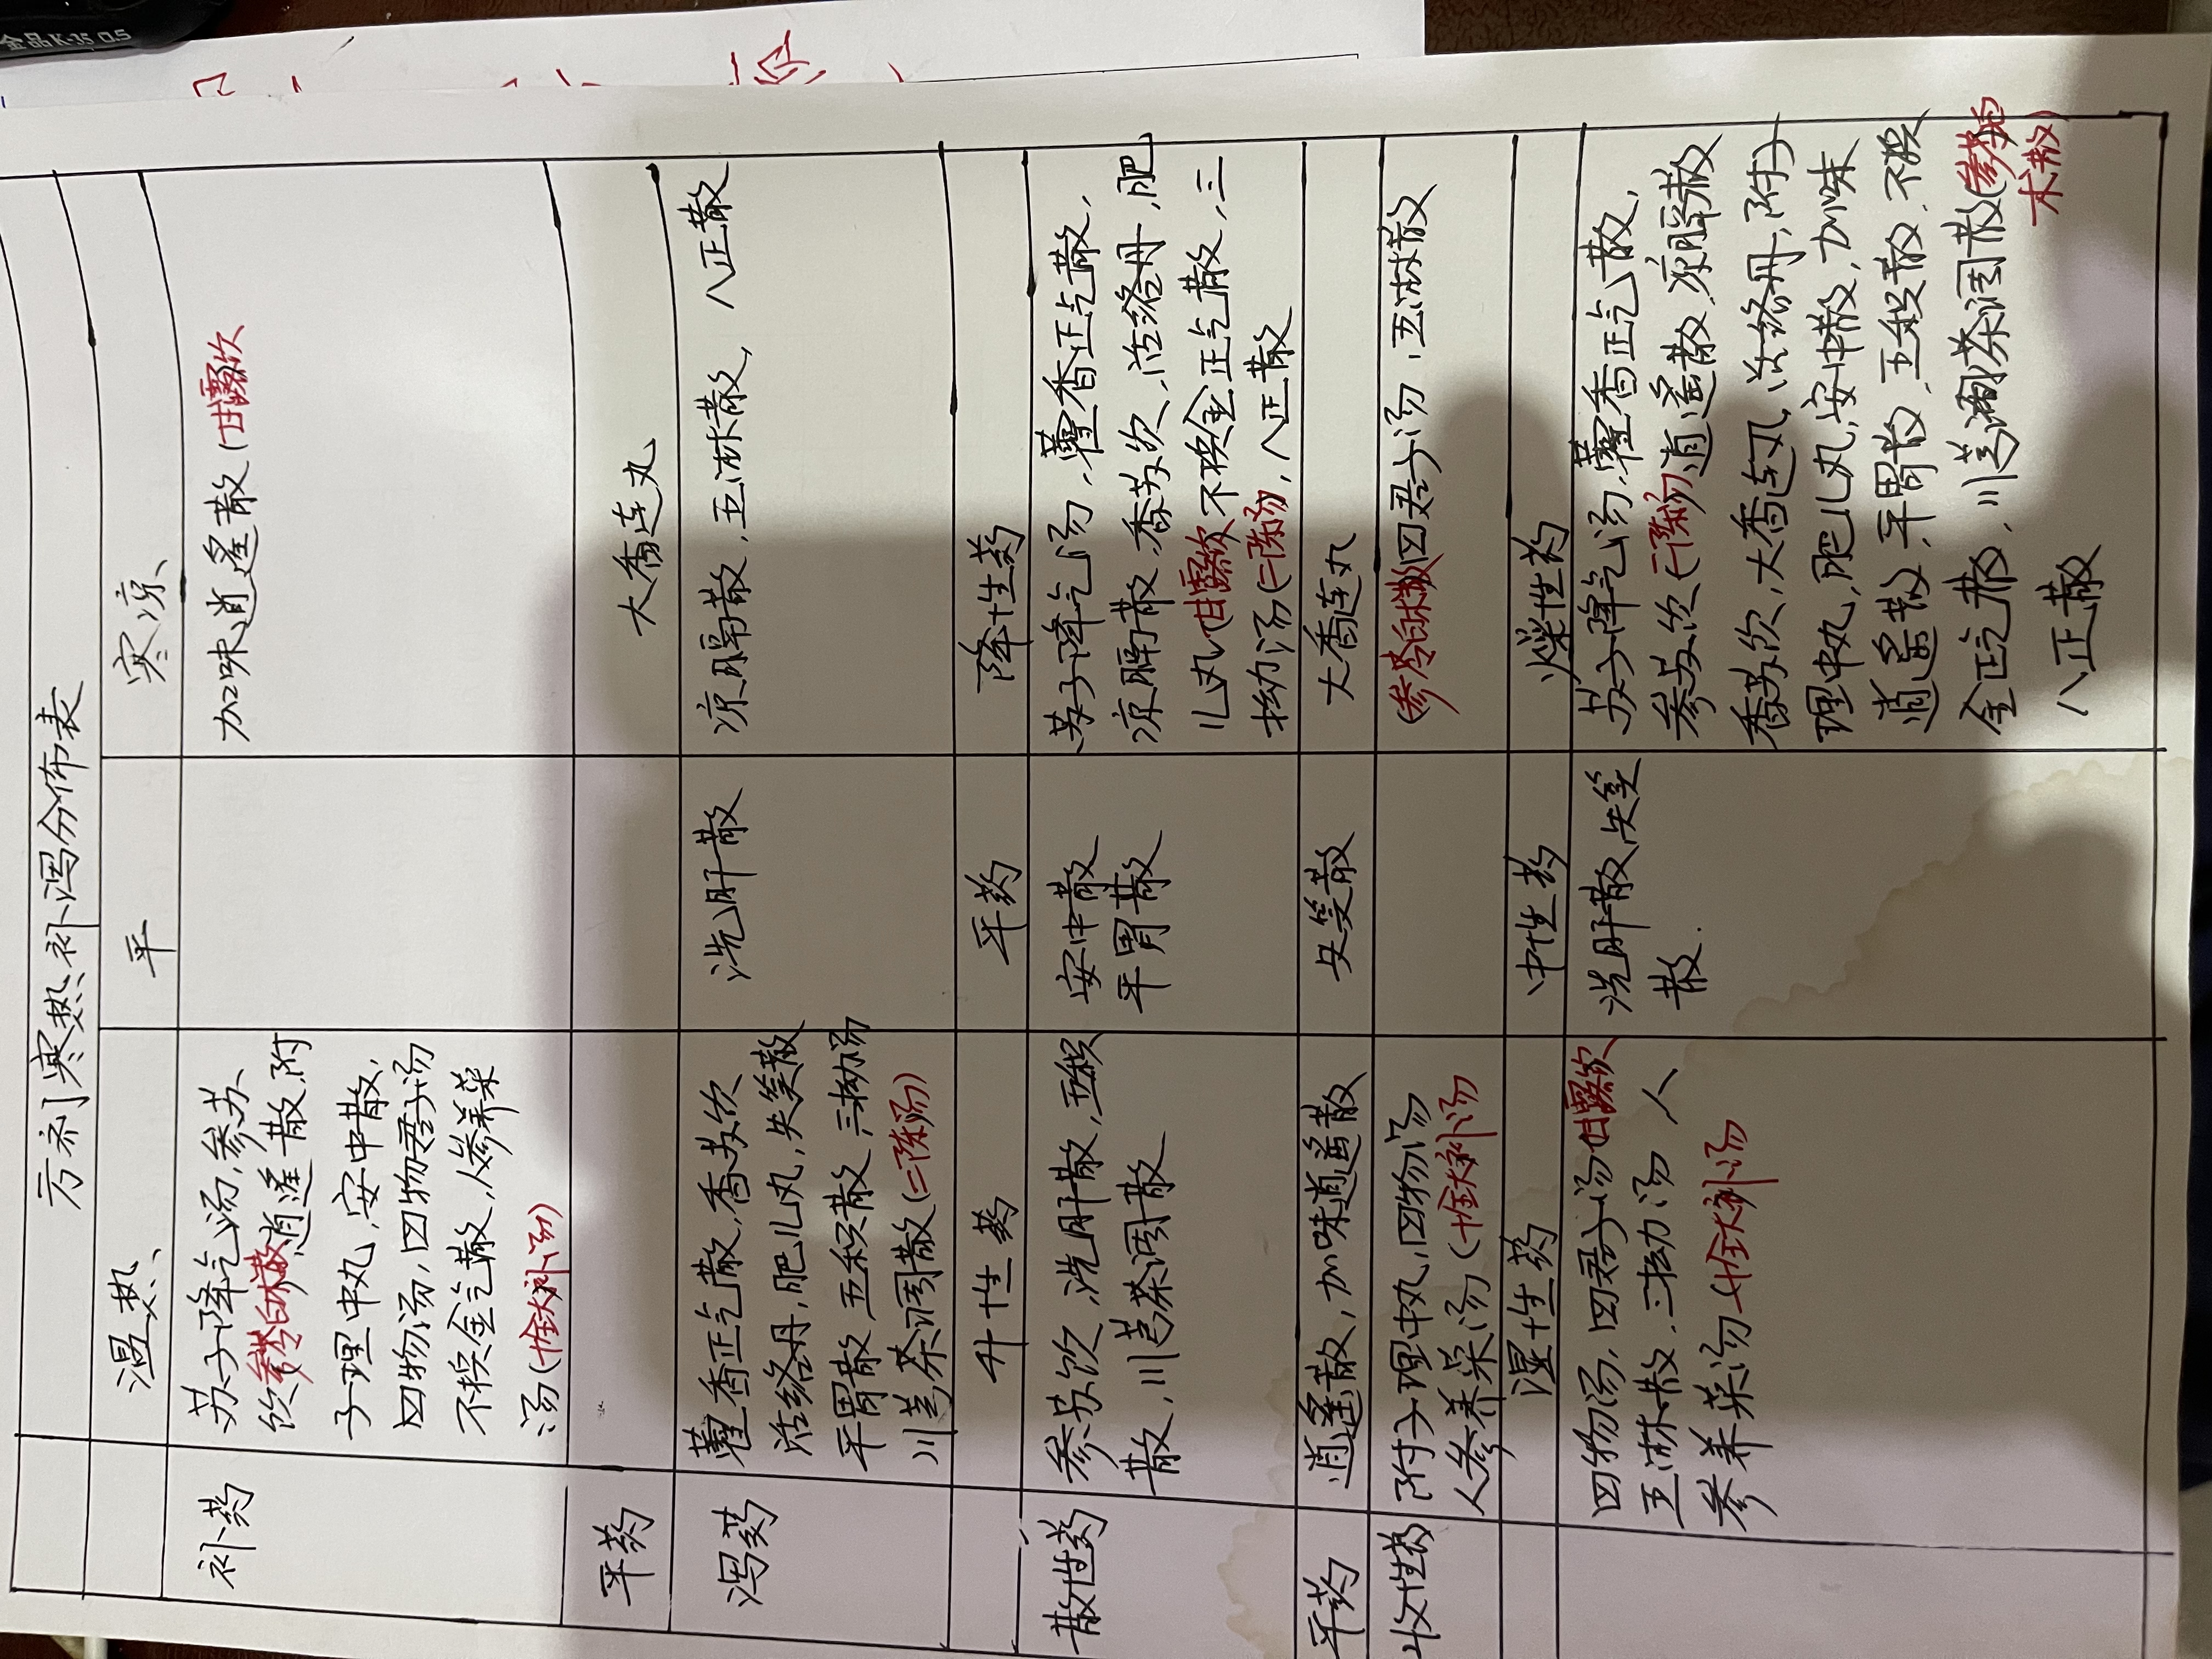 金品K-35 0.5
方剂寒热补泻分布表
温热、 平 寒凉、
补药
苏子降气汤,参苏
饮参苓白术散逍遥散,附
子理中丸,安中散,
四物汤,四物君子汤
不换金气散,人参养荣
汤(十全大补汤)
加味逍遥散(甘露饮
平药
大香连丸
泻药
藿香正气散,香苏饮
活络丹,肥儿丸,失笑散
平胃散,五积散,三拗汤
川芎茶调散(二陈汤)
洗肝散
凉膈散,五淋散,八正散
升性药 平药 降性药
散性药
参苏饮,洗肝散,五积
散,川芎茶调散
安中散
平胃散
苏子降气汤,藿香正气散,
凉膈散,香苏饮,活络丹,肥
儿丸(甘露饮不换金正气散,三
拗汤(二陈汤),八正散
平药
逍遥散,加味逍遥散
失笑散
大香连丸
收性药
附子理中丸,四物汤
人参养荣汤(十全大补汤
(参苓白术散)四君子汤,五淋散
湿性药 中性药 燥性药
四物汤,四君子汤甘露饮
五淋散,三拗汤 人
参养荣汤(十全大补汤
洗肝散,失笑
散.
苏子降气汤,藿香正气散,
参苏饮(二陈汤)逍遥散,凉膈散
香苏饮,大香连丸,活络丹,附子
理中丸,肥儿丸,安中散,加味
逍遥散,平胃散,五积散,不换
金正气散,川芎茶调散(参苓白
术散)
八正散